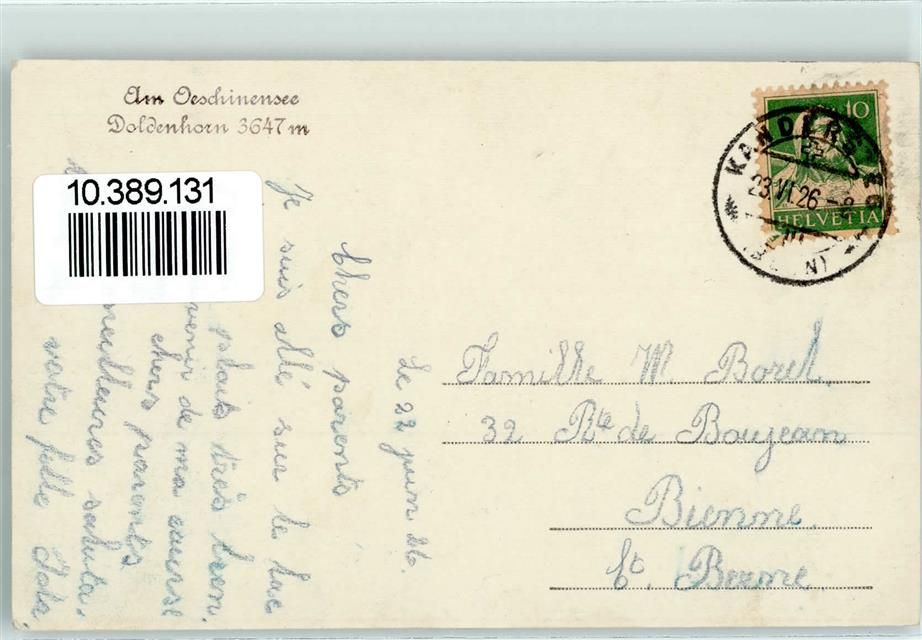 Am Oeschinensee
Doldenhorn 3647 m
10.389.131
10
HELVETIA
KANDERS
23.VI.26.-8
Familte M Borel.
32 Rte de Boujean
Bienne.
Ct. Berne
Le 22 juin 26.
Chers parents
Je suis allé sur le lac
plais très bien.
venir de ma course
chers parents.
meilleures saluta.
votre fille Ida.